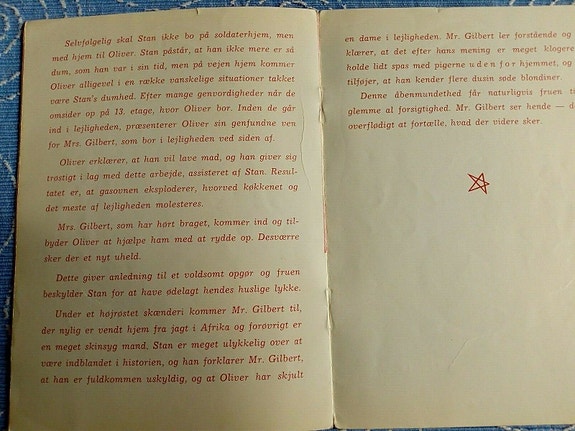 Selvfølgelig skal Stan ikke bo på soldaterhjem, men
med hjem til Oliver. Stan påstår, at han ikke mere er så
dum, som han var i sin tid, men på vejen hjem kommer
Oliver alligevel i en række vanskelige situationer takket
være Stan's dumhed. Efter mange genvordigheder når de
omsider op på 13. etage, hvor Oliver bor. Inden de går
ind i lejligheden, præsenterer Oliver sin genfundne ven
for Mrs. Gilbert, som bor i lejligheden ved siden af.
Oliver erklærer, at han vil lave mad, og han giver sig
trøstigt i lag med dette arbejde, assisteret af Stan. Resul-
tatet er, at gasovnen eksploderer, hvorved køkkenet og
det meste af lejligheden molesteres.
Mrs. Gilbert, som har hørt braget, kommer ind og til-
byder Oliver at hjælpe ham med at rydde op. Desværre
sker der et nyt uheld.
Dette giver anledning til et voldsomt opgør og fruen
beskylder Stan for at have ødelagt hendes huslige lykke.
Under et højrøstet skænderi kommer Mr. Gilbert til,
der nylig er vendt hjem fra jagt i Afrika og forøvrigt er
en meget skinsyg mand. Stan er meget ulykkelig over at
være indblandet i historien, og han forklarer Mr. Gilbert,
at han er fuldkommen uskyldig, og at Oliver har skjult
en dame i lejligheden. Mr. Gilbert ler forstående og
klærer, at det efter hans mening er meget klogere
holde lidt spas med pigerne udenfor hjemmet, og
tilføjer, at han kender flere dusin søde blondiner.
Denne åbenmundethed får naturligvis fruen ti
glemme al forsigtighed. Mr. Gilbert ser hende — d
overflødigt at fortælle, hvad der videre sker.